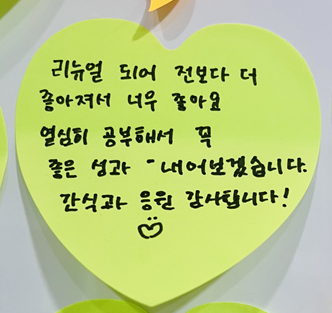 리뉴얼 되어 전보다 더
좋아져서 너무 좋아요
열심히 공부해서 꼭
좋은 성과 - 내어보겠습니다.
간식과 응원 감사합니다!